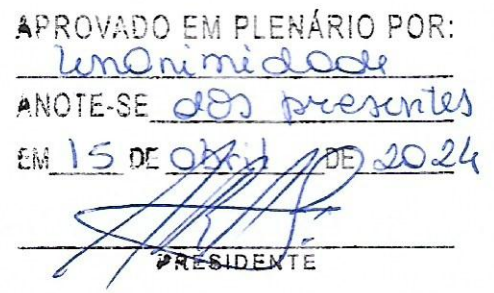 APROVADO EM PLENÁRIO POR:
unanimidade
ANOTE-SE dos presentes
EM 15 DE abril DE 2024
PRESIDENTE